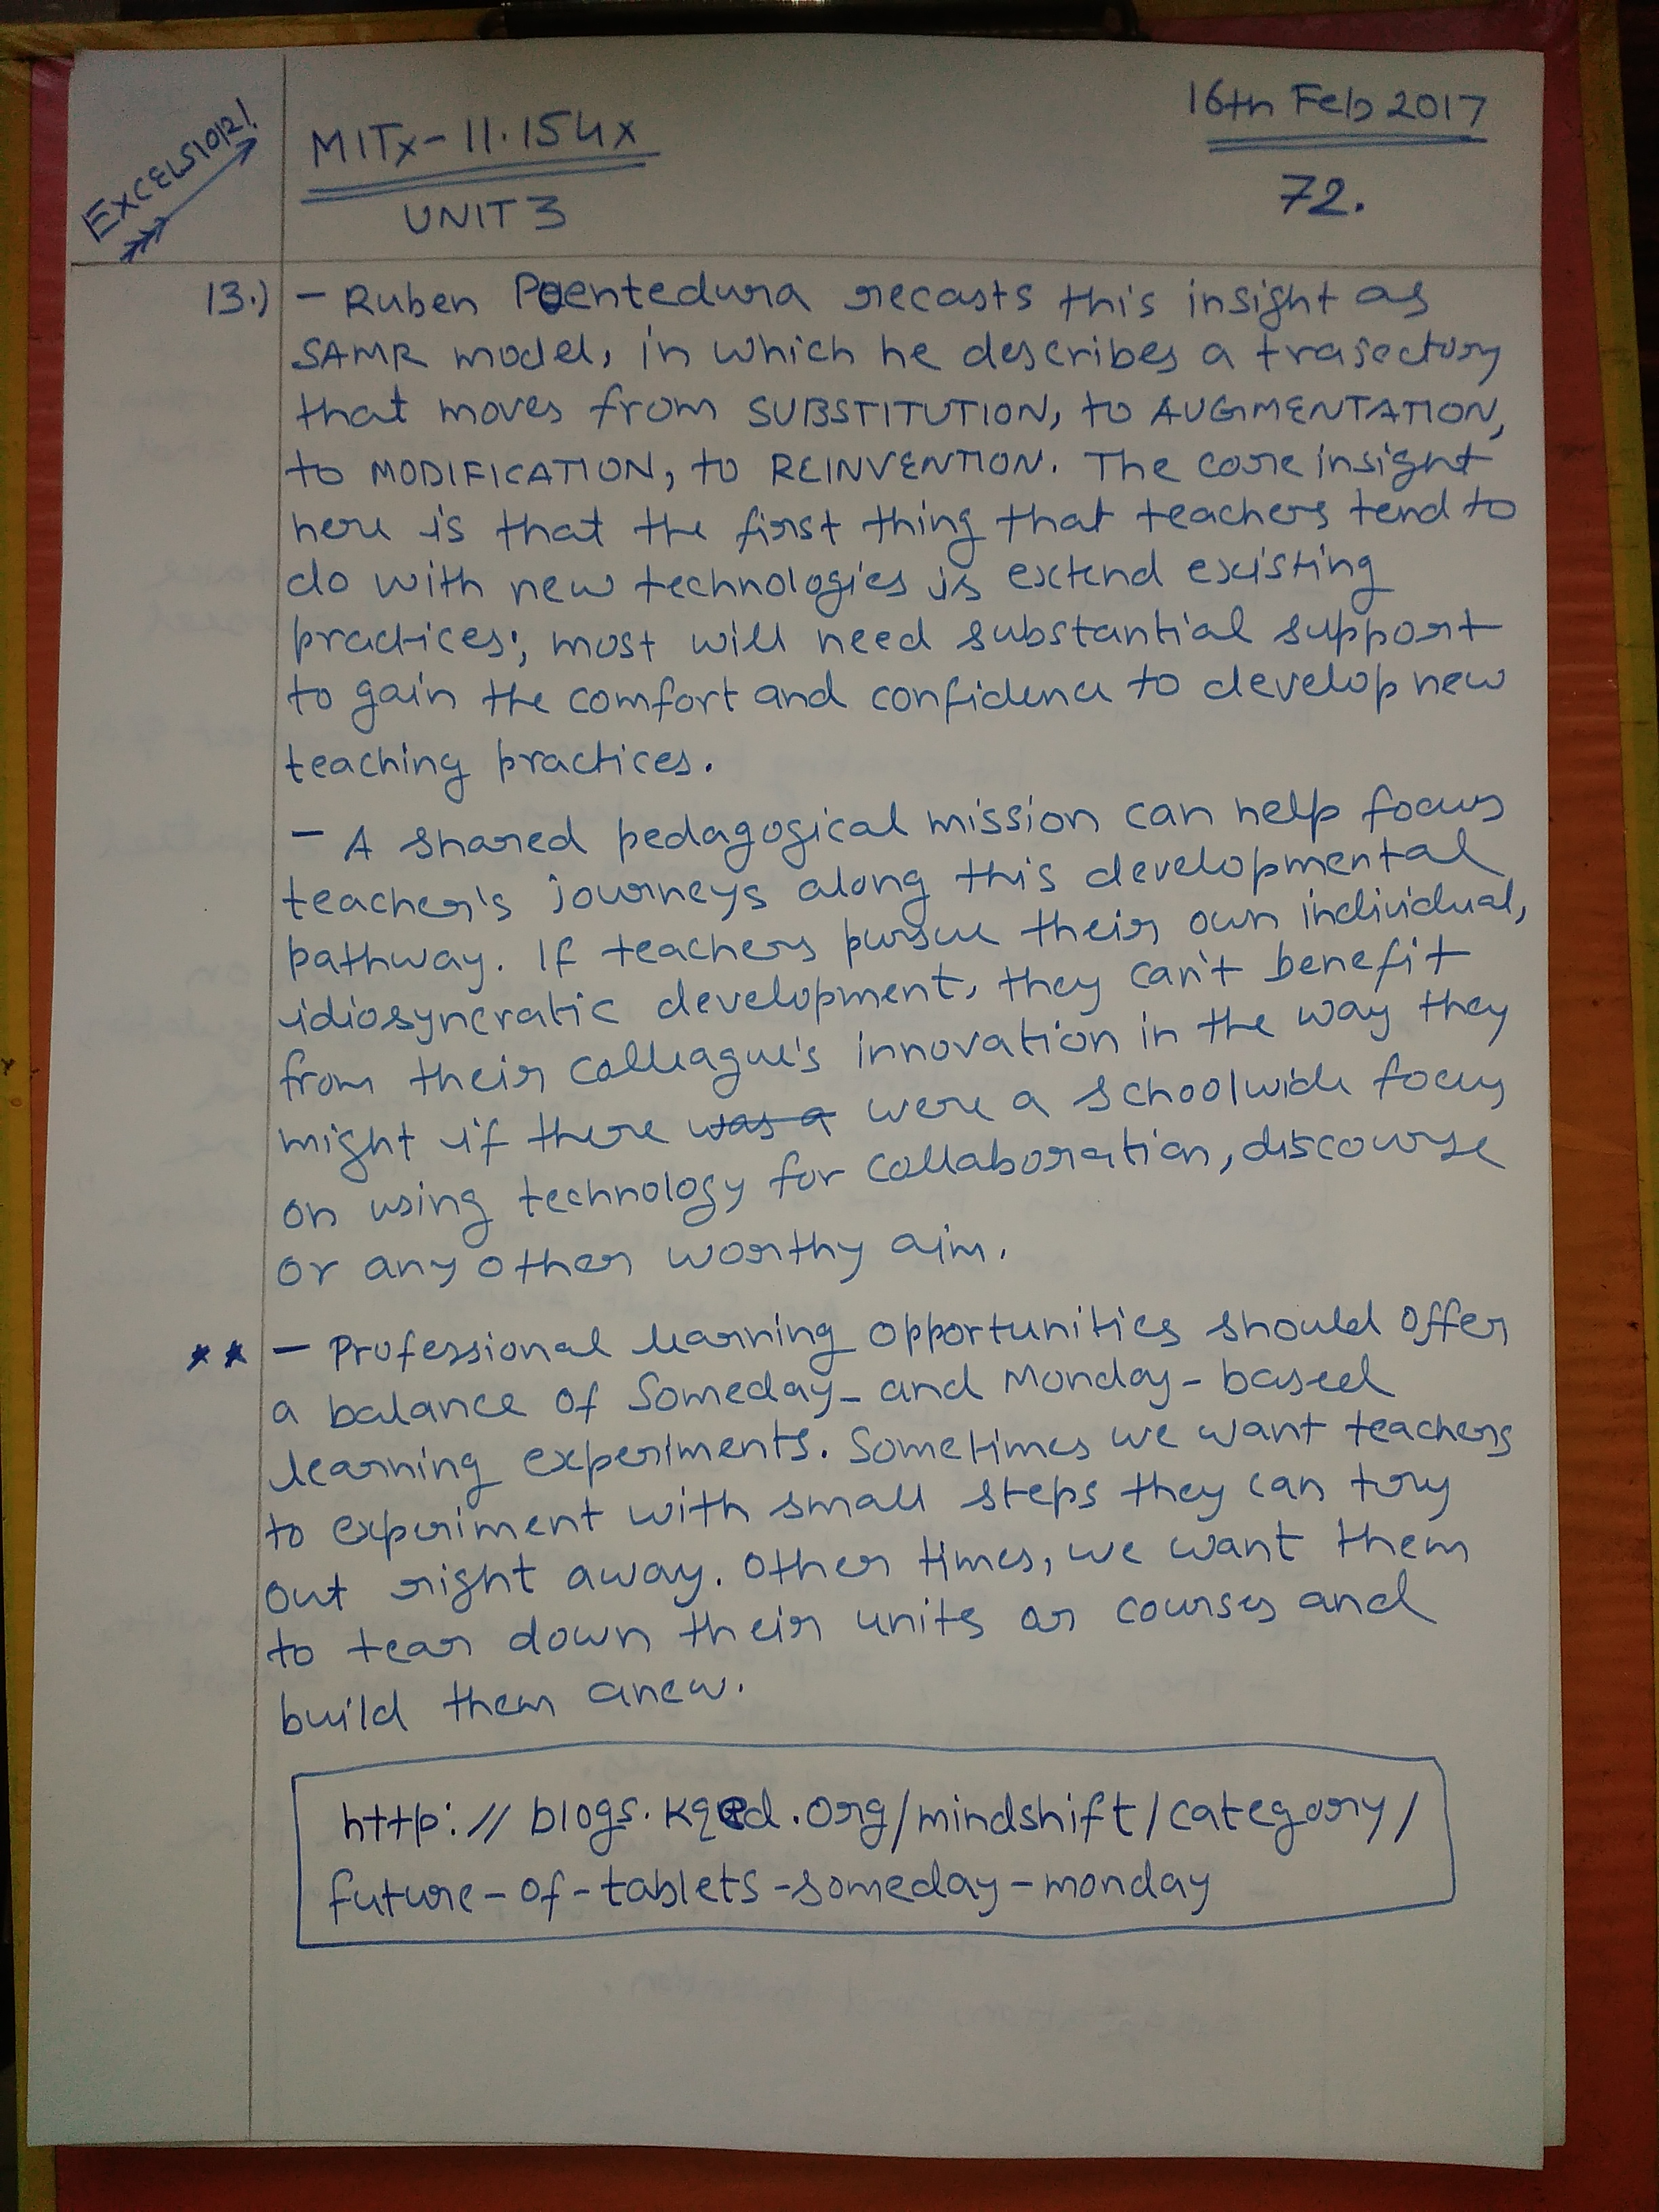 EXCELSIOR!
MITx-11.154x
UNIT 3
16th Feb 2017
72.
13.) - Ruben Puentedura recasts this insight as
SAMR model, in which he describes a trajectory
that moves from SUBSTITUTION, to AUGMENTATION,
to MODIFICATION, to REINVENTION. The core insight
here is that the first thing that teachers tend to
do with new technologies is extend existing
practices; most will need substantial support
to gain the comfort and confidence to develop new
teaching practices.
- A shared pedagogical mission can help focus
teacher's journeys along this developmental
pathway. If teachers pursue their own individual,
idiosyncratic development, they can't benefit
from their colleague's innovation in the way they
might if there was a were a schoolwide focus
on using technology for collaboration, discourse
or any other worthy aim.
** - Professional learning opportunities should offer
a balance of Someday- and Monday-based
learning experiments. Sometimes we want teachers
to experiment with small steps they can try
out right away. Other times, we want them
to tear down their units or courses and
build them anew.
http://blogs.kqed.org/mindshift/category/
future-of-tablets-someday-monday